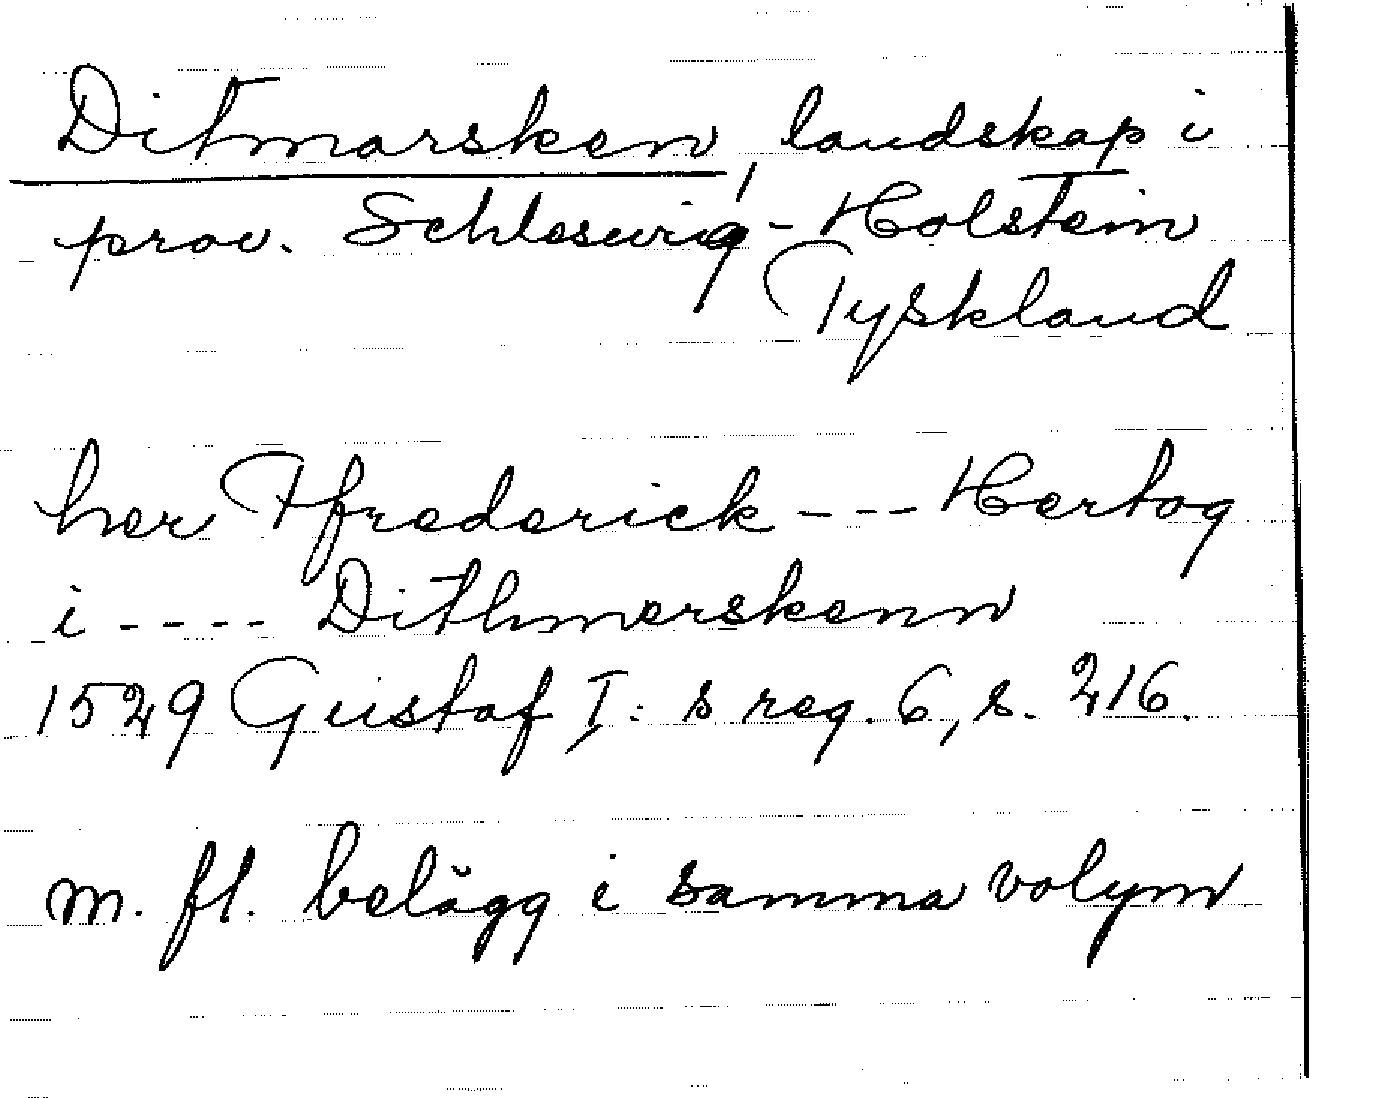 Ditmarsken, landskap i
prov. Schleswig-Holstein
Tyskland
her Ffrederick --- Hertog
i ---- Dithmerskenn
1529 Gustaf I:s reg. 6, s. 216.
m. fl. belägg i samma volym